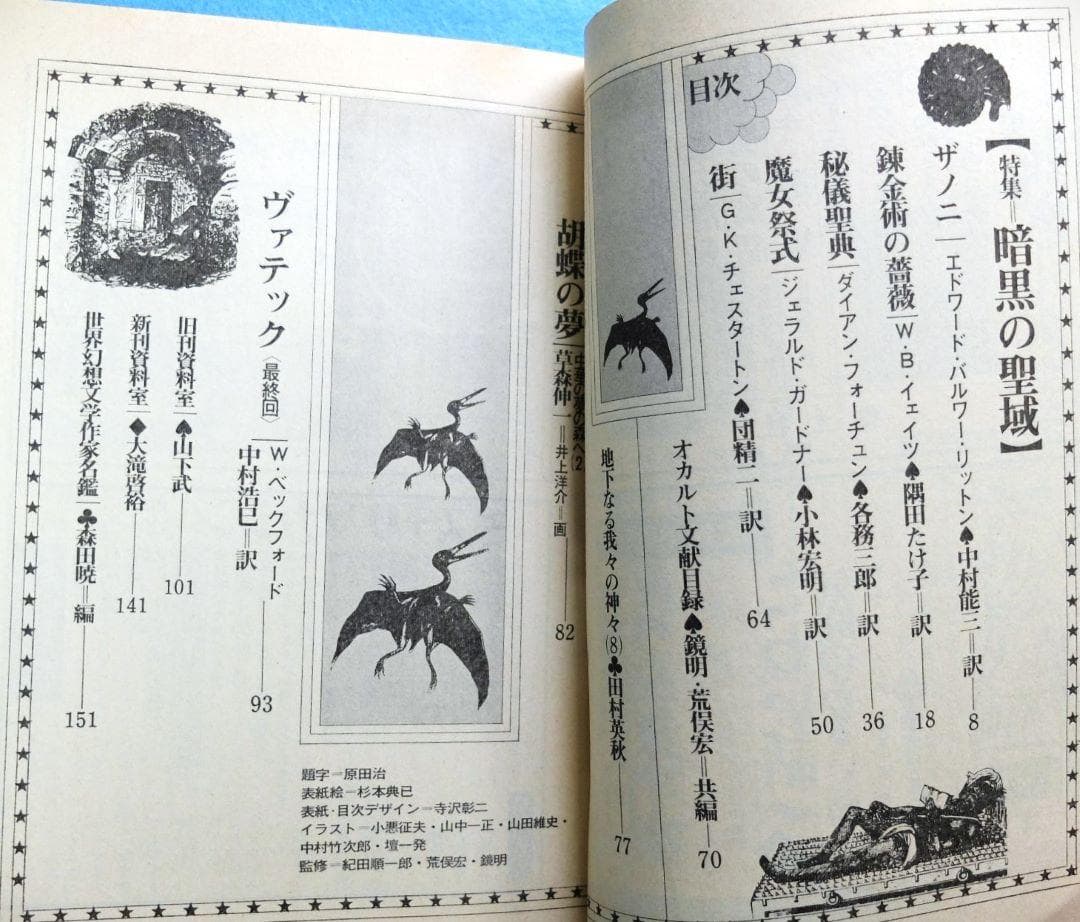 目次
【特集＝暗黒の聖域】
ザノニ―エドワード・バルワー・リットン♠中村能三＝訳―8
錬金術の薔薇―W・B・イェイツ♠隅田たけ子＝訳―18
秘儀聖典―ダイアン・フォーチュン♠各務三郎＝訳―36
魔女祭式―ジェラルド・ガードナー♠小林宏明＝訳―50
街―G・K・チェスタートン♠団精二＝訳―64
オカルト文献目録♠鏡明・荒俣宏＝共編―70
地下なる我々の神々(8)♣田村英秋―77
胡蝶の夢―中華の夢の森へ2
草森伸一＝井上洋介＝画―82
ヴァテック〈最終回〉―W・ベックフォード
中村浩巳＝訳―93
旧刊資料室♠山下武―101
新刊資料室◆大滝啓裕―141
世界幻想文学作家名鑑♣森田暁＝編―151
題字＝原田治
表紙絵＝杉本典巳
表紙・目次デザイン＝寺沢彰二
イラスト＝小悪征夫・山中一正・山田維史・
中村竹次郎・壇一発
監修＝紀田順一郎・荒俣宏・鏡明